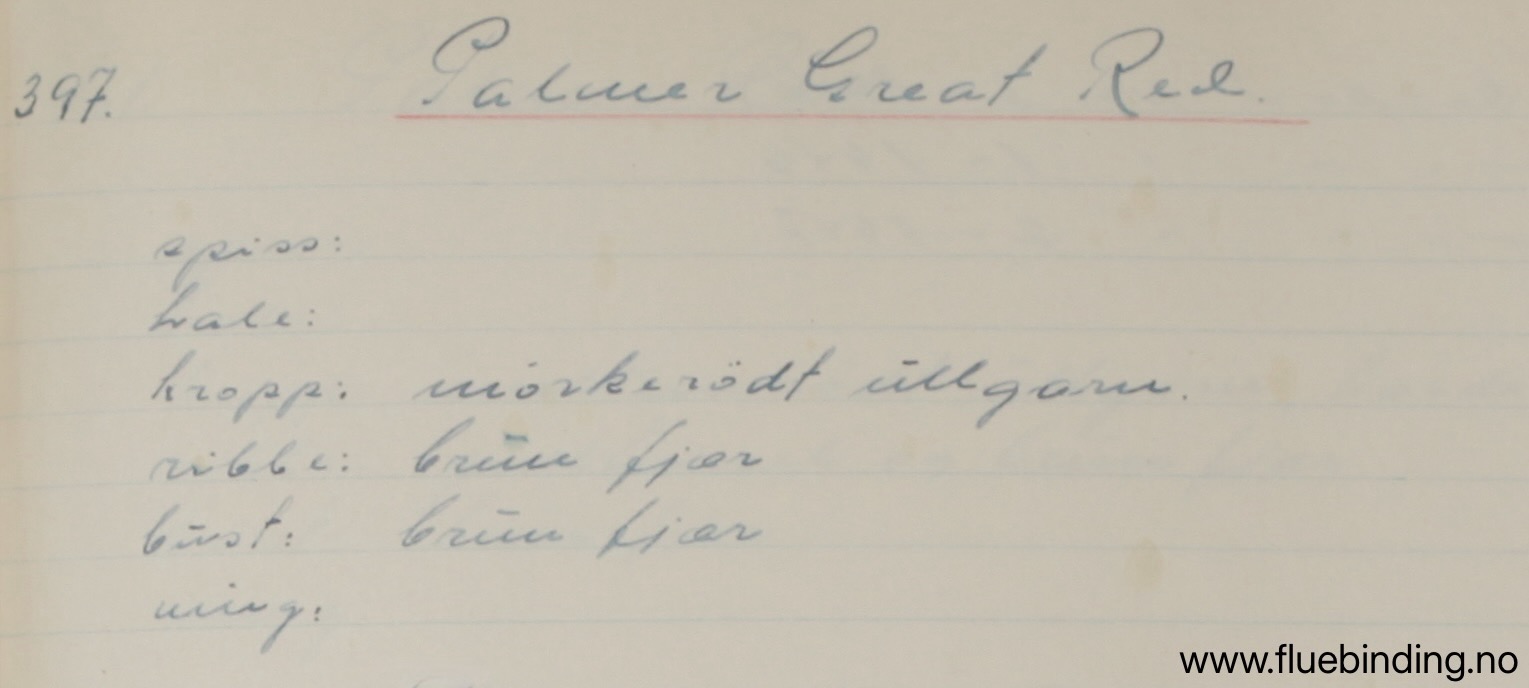 397. Palmer Great Red.
spiss:
hale:
kropp: mörkerödt ullgarn.
ribbe: brun fjær
bust: brun fjær
ving:
www.fluebinding.no